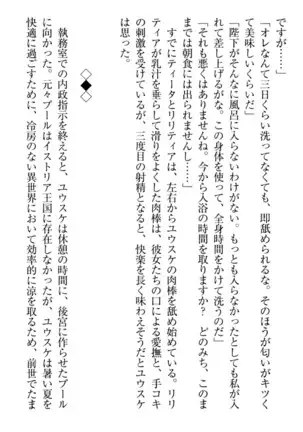 ですが……」
「オレなんて三日くらい洗ってなくても、即舐められるな。そのほうが匂いがキツくて美味しいくらいだ」
「陛下がそんなに風呂に入らないわけがない。もっとも入らなかったとしても私が入れて差し上げるがな。この身体を使って、全身に時間をかけて洗うのだ」
「それも悪くはありませんね。今から入浴の時間を取りますか？　どのみち、このままでは朝食には出られませんし……」
　すでにティータとリリティアは、左右からユウスケの肉棒を舐め始めている。リリティアが乳汁を垂らして滑りをよくした肉棒は、彼女たちの口による愛撫と、手コキの刺激を受けているが、三度目の射精となると、快楽を長く味わえそうだとユウスケは思った。
◇◆◇
　執務室での内政指示を終えると、ユウスケは休憩の時間に、後宮に作らせたプールに向かった。元々プールはイストリア王国に存在しなかったが、ユウスケは暑い夏を快適に過ごすために、冷房のない異世界において効率的に涼を取るため、前世でたま